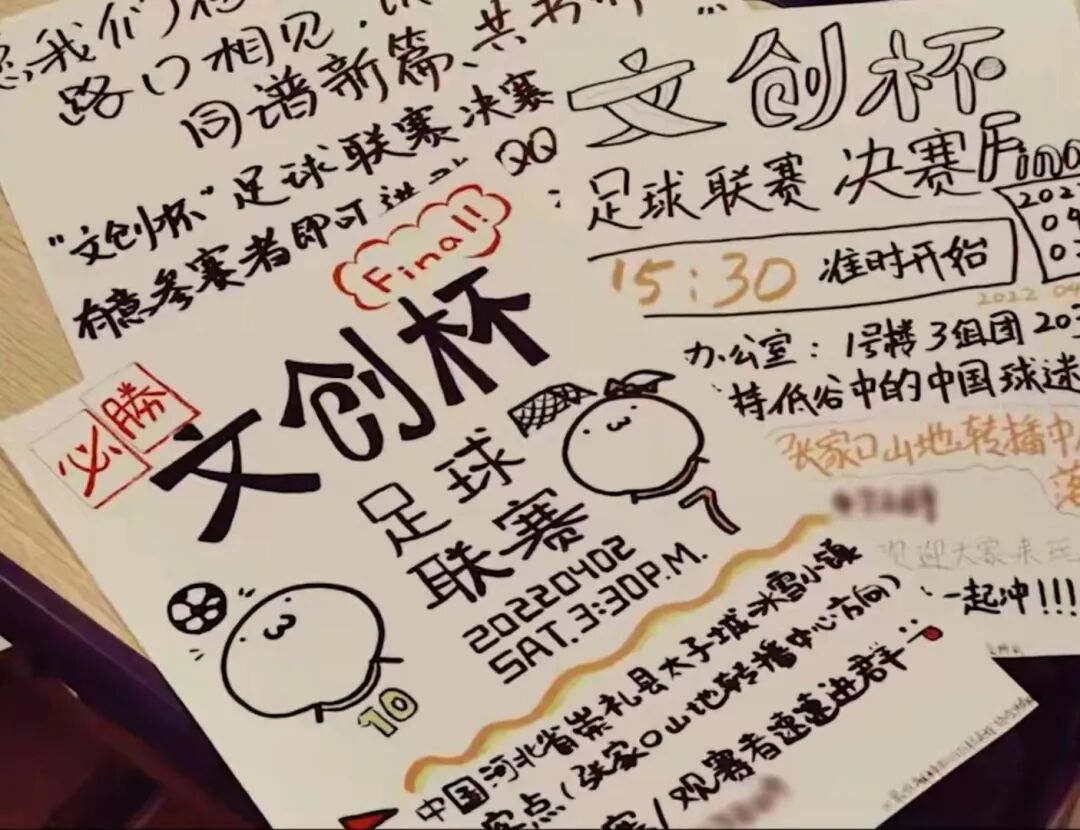 我们
路口相见
同谱新篇、共书
"文创杯"足球联赛决赛
有意参赛者即可进 QQ
Final!
必勝
文创杯
足球
联赛
20220402
SAT.3:30P.M.
7
10
中国河北省崇礼县太子城冰雪小镇
客点(张家口山地转播中心方向)
赛/观赛者速速进群
文创杯
足球联赛 决赛 Fina
202
04
0
15:30 准时开始
2022 04
办公室:1号楼3组团 203
持低谷中的中国球迷
张家口山地转播中
落
欢迎大家来玩
一起冲!!!